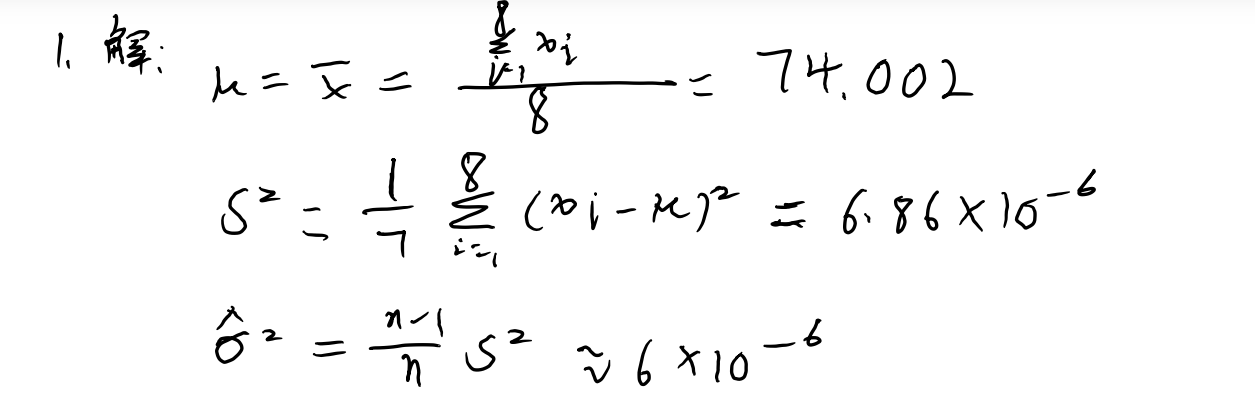 1. 解: μ = x̄ = \frac{\sum_{i=1}^{8} x_i}{8} = 74.002
S² = \frac{1}{7} \sum_{i=1}^{8} (x_i - μ)² = 6.86 × 10^{-6}
\hat{σ}² = \frac{n-1}{n} S² ≈ 6 × 10^{-6}